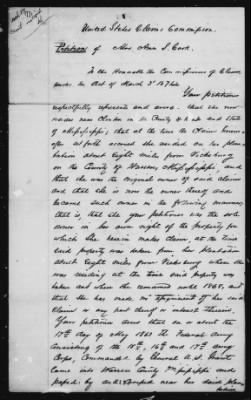 United States Claims Commission.
Petition of Mrs. Ann S. Cook.
To the Honorable the Commissioners of Claims
under the Act of March 3d 1871.
Your petitioner
respectfully represents and avers that she now
resides near Clinton in the County of Hinds and State
of Mississippi; that at the time the Claim herein-
after set forth accrued she resided on her plan-
tation about Eight miles from Vicksburg
in the County of Warren, Mississippi, and
that she was the original owner of said Claim
and that she is now the owner thereof and
became such owner in the following manner
that is, that she your petitioner was the sole
owner in her own right of the property for
which she herein makes Claim, at the time
said property was taken from her plantation
about Eight miles from Vicksburg where she
was residing at the time said property was
taken and where she remained until 1868, and
that she has made no assignment of her said
Claim or any part thereof or interest therein.
Your petitioner avers that on or about the
18th day of May 1863 the Federal Army
consisting of the 13th, 15th and 17th Army
Corps, Commanded by General U. S. Grant
Came into Warren County Mississippi and
passed by and encamped near her said plan-
tation